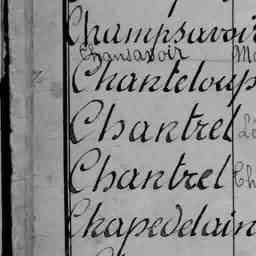 Champsavoir
Chansavoir
Chanteloup
Chantrel
Chantrel
Chapedelain